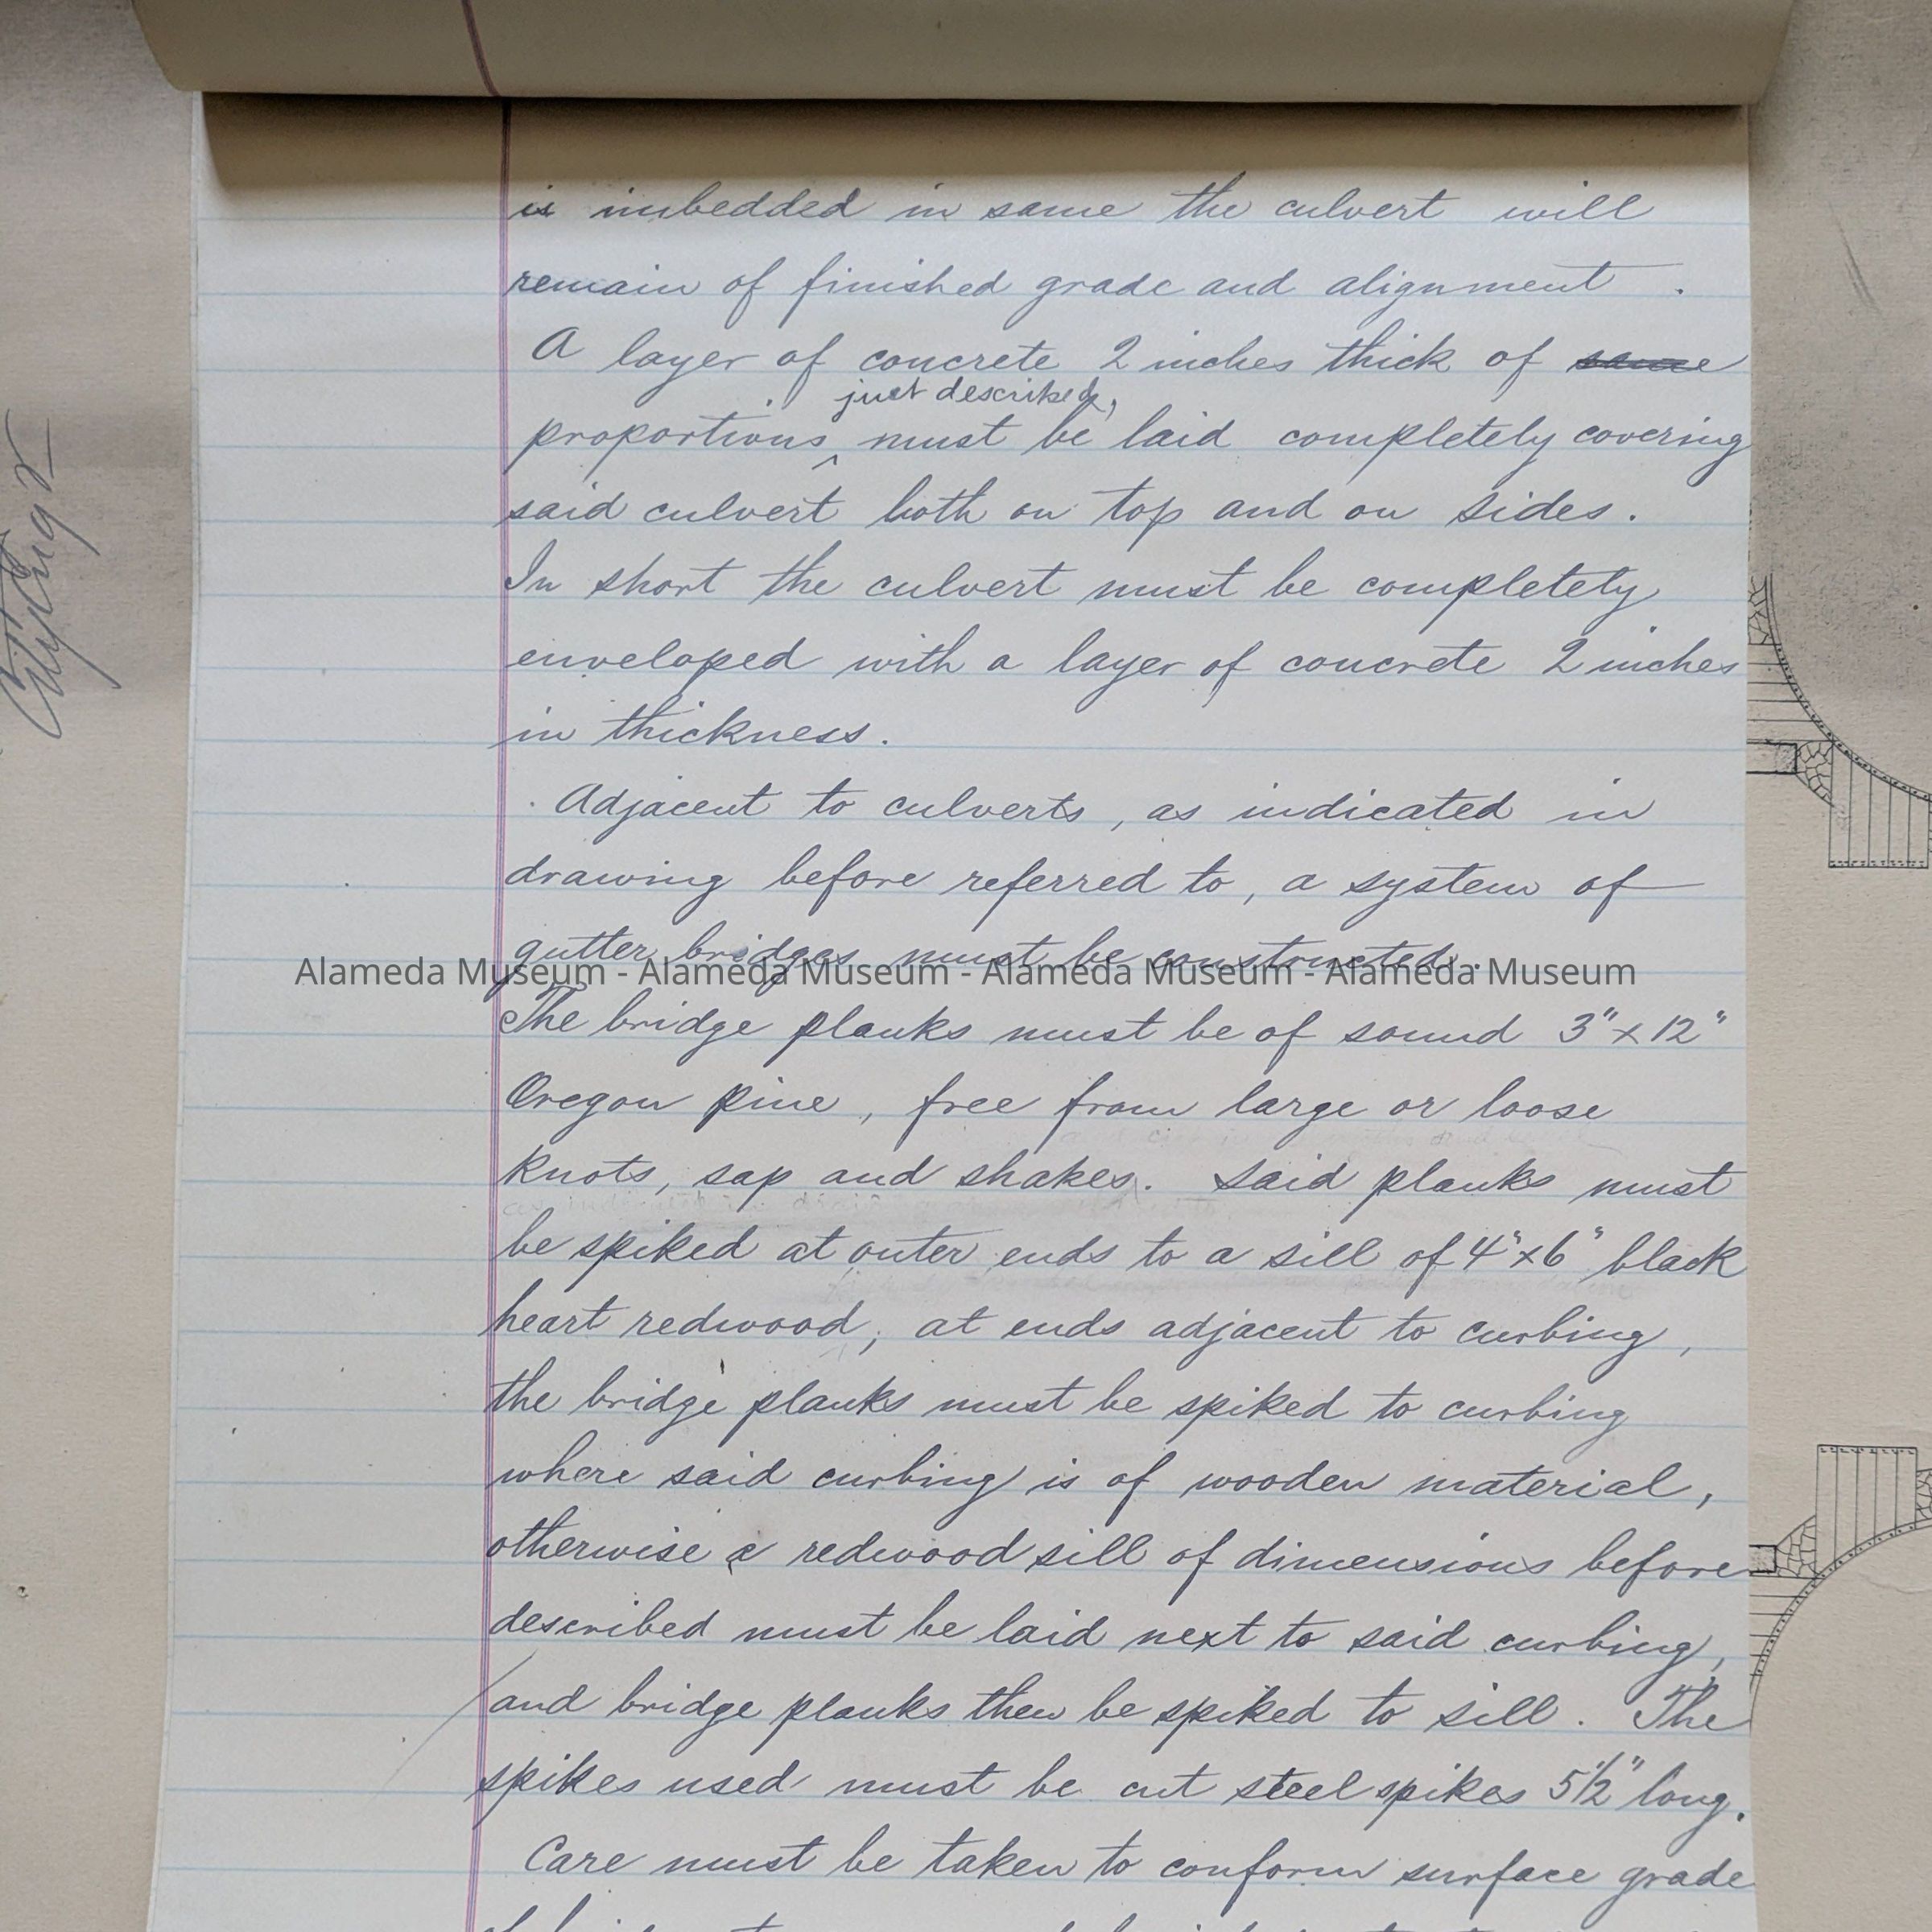 is imbedded in same the culvert will
remain of finished grade and alignment .
A layer of concrete 2 inches thick of same
just described,
proportions must be laid completely covering
said culvert both on top and on sides.
In short the culvert must be completely
enveloped with a layer of concrete 2 inches
in thickness.
Adjacent to culverts, as indicated in
drawing before referred to, a system of
gutter bridges must be constructed.
Alameda Museum - Alameda Museum - Alameda Museum - Alameda Museum
The bridge planks must be of sound 3" x 12"
Oregon pine, free from large or loose
knots, sap and shakes. Said planks must
be spiked at outer ends to a sill of 4" x 6" black
heart redwood; at ends adjacent to curbing,
the bridge planks must be spiked to curbing
where said curbing is of wooden material,
otherwise a redwood sill of dimensions before
described must be laid next to said curbing,
and bridge planks then be spiked to sill. The
spikes used must be cut steel spikes 5 1/2" long.
Care must be taken to conform surface grade